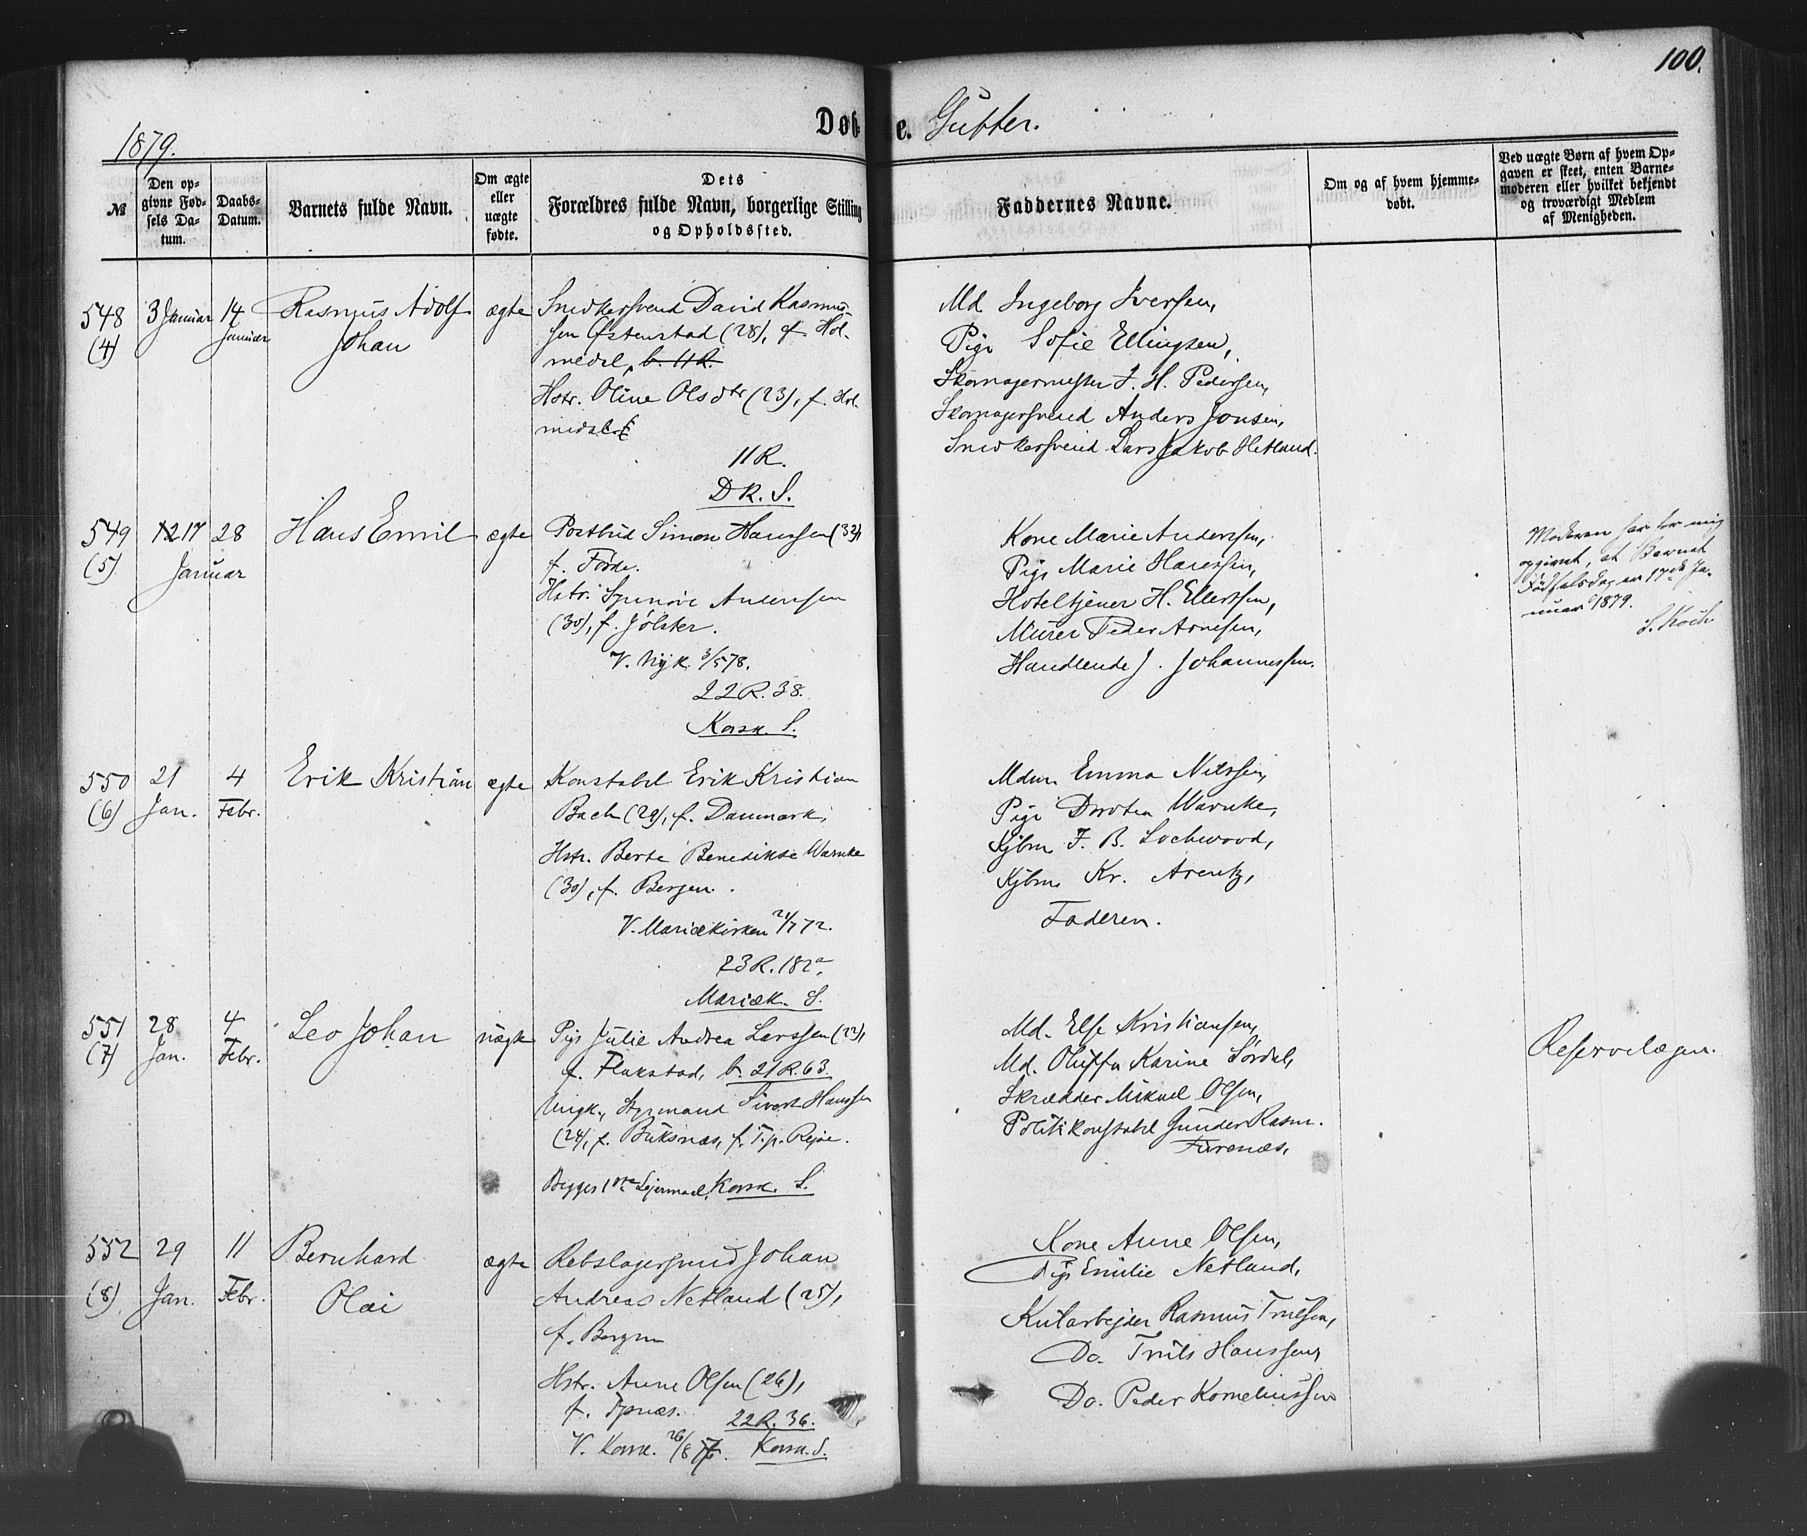 100.
1879.
Døb e. Gutter.
№
Den op-
givne Fød-
sels Da-
tum.
Daabs-
Datum.
Barnets fulde Navn.
Om ægte
eller
uægte
fødte.
Dets
Forældres fulde Navn, borgerlige Stilling
og Opholdssted.
Faddernes Navne.
Om og af hvem hjemme-
døbt.
Ved uægte Børn af hvem Op-
gaven er skeet, enten Barne-
moderen eller hvilket bekjendt
og troværdigt Medlem
af Menigheden.
548
(4)
3 Januar
14
Januar
Rasmus Adolf
Johan
ægte
Snidkersvend David Rasmus-
sen Østenstad (28), f. Hol-
medal, b. 11 R.
Hstr. Oline Olsdtr (23), f. Hol-
medal
11 R.
D K. S.
Md Ingeborg Iversen,
Pige Sofie Ellingsen,
Skomagermester J. H. Pedersen,
Skomagersvend Anders Jonsen,
Snidkersvend Lars Jakob Hetland.
549
(5)
12 17
Januar
28
Hans Emil
ægte
Postbud Simon Hanssen (32),
f. Førde.
Hstr. Synnøve Andersen
(30), f. Jølster.
V. Nyk. 3/5 78.
22 R. 38.
Korsk. S.
Kone Marie Anderssen,
Pige Marie Hanssen,
Hoteltjener H. Ellerssen,
Murer Peder Arnesen,
Handlende J. Johannessen.
Moderen har for mig
opgivet, at Barnet
Fødselsdag er 17de Ja-
nuar 1879.
S. Koch
550
(6)
21
Jan.
4
Febr.
Erik Kristian
ægte
Konstabel Erik Kristian
Bach (29), f. Danmark,
Hstr. Berte Benedikte Warnke
(30), f. Bergen.
V. Mariækirken 21/7 72.
23 R. 182a,
Mariæk. S.
Mdm Emma Nilssen,
Pige Dorotea Warnke,
Kjbm F. B. Lochwood,
Kjbm. Kr. Arentz,
Faderen.
551
(7)
28
Jan.
4
Febr.
Leo Johan
uægte
Pige Julie Andrea Larssen (22),
f. Flakstad, b. 21 R. 63.
Ungk., Styrmand Sivert Hanssen
(24), f. Buksnæs, f. T. p. Rejse.
Begges 1ste Lejermaal. Korsk. S.
Md. Else Kristiansen,
Md. Oluffa Karine Sørdal,
Skrædder Mikael Olsen,
Politikonstabel Gunder Rasm.
Furenæs,
Reservelægen.
552
(8)
29
Jan.
11
Febr.
Bernhard
Olai
ægte
Rebslagersvend Johan
Andreas Netland (25),
f. Bergen
Hstr. Anne Olsen (26),
f. Fpnæs.
22 R. 36.
V. Korsk. 26/8 77. Korsk. S.
Kone Anne Olsen,
Pige Emilie Netland,
Kutarbejder Rasmus Trulsen,
Do. Truls Hanssen,
Do. Peder Korneliussen